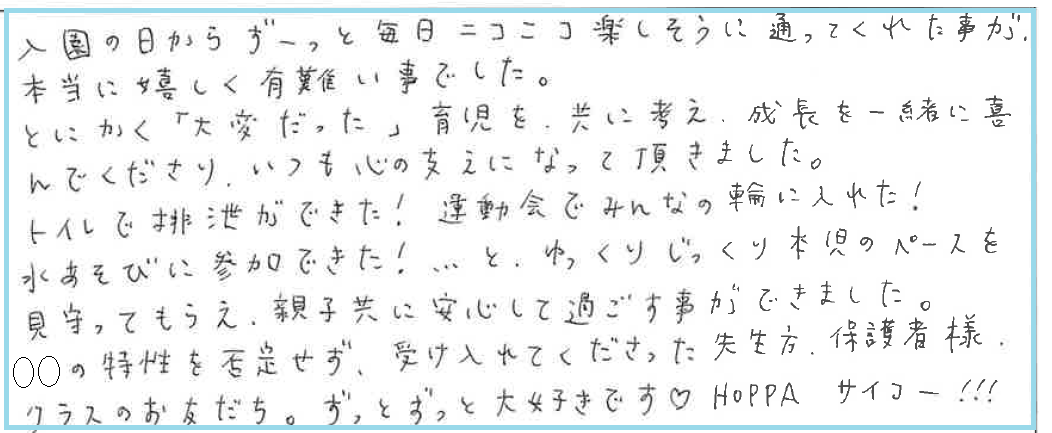 入園の日からずーっと毎日ニコニコ楽しそうに通ってくれた事が、
本当に嬉しく有難い事でした。
とにかく「大変だった」育児を、共に考え、成長を一緒に喜
んでくださり、いつも心の支えになって頂きました。
トイレで排泄ができた！運動会でみんなの輪に入れた！
水あそびに参加できた！…と、ゆっくりじっくり本児のペースを
見守ってもらえ、親子共に安心して過ごす事ができました。
〇〇の特性を否定せず、受け入れてくださった先生方、保護者様、
クラスのお友だち。ずっとずっと大好きです♡ HOPPA サイコー!!!